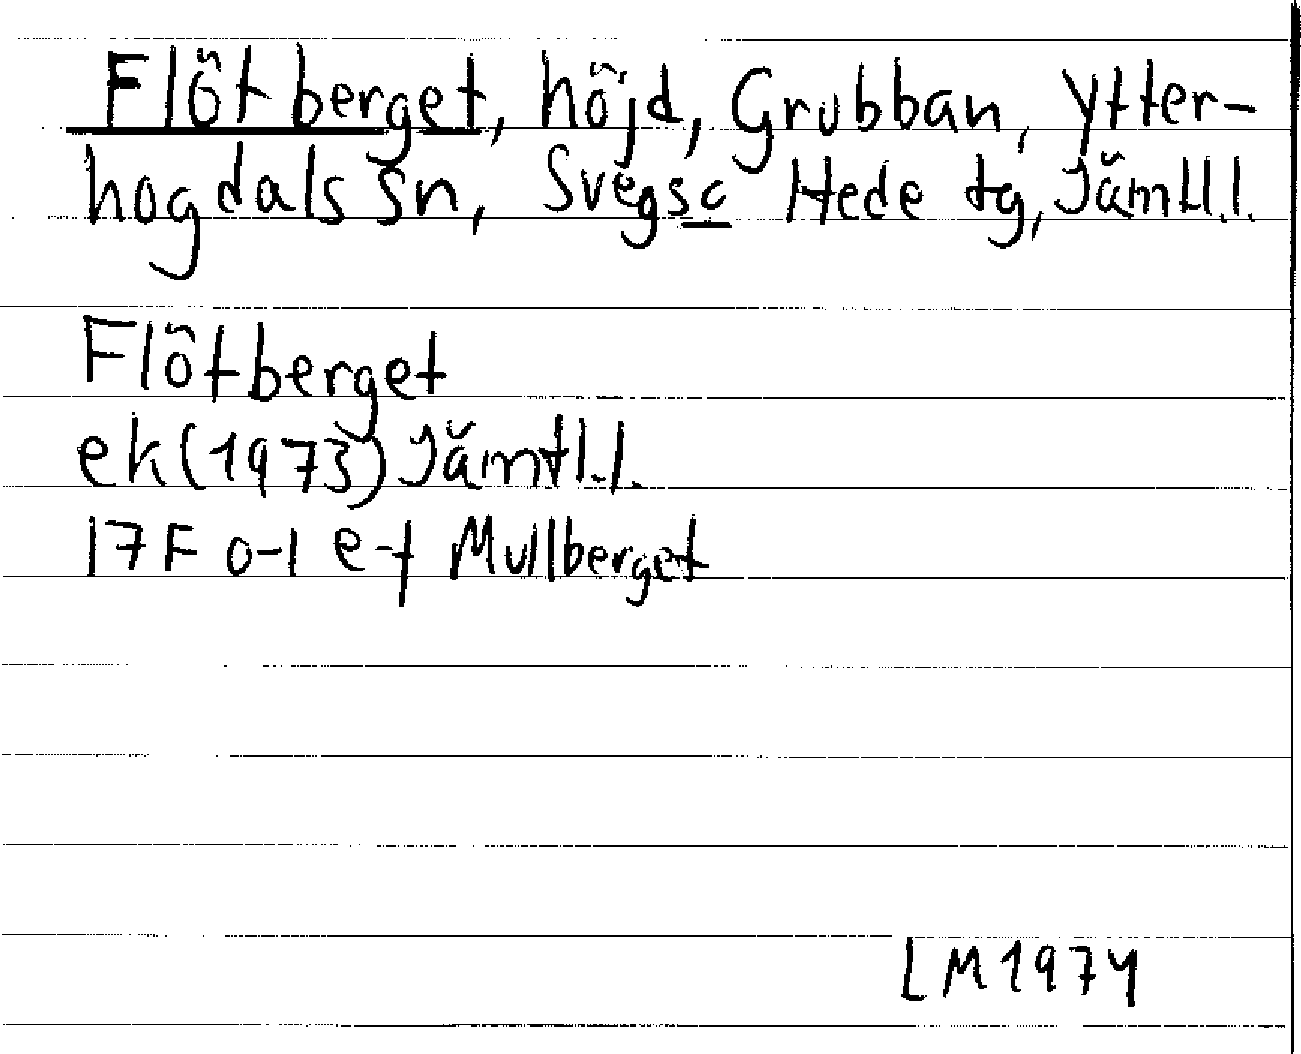 Flötberget, höjd, Grubban, Ytter-
hogdals sn, Svegs o Hede tg, Jämtl.l.
Flötberget
ek (1973) Jämtl.l.
17F 0-1 e-f Mullberget
LM 1974